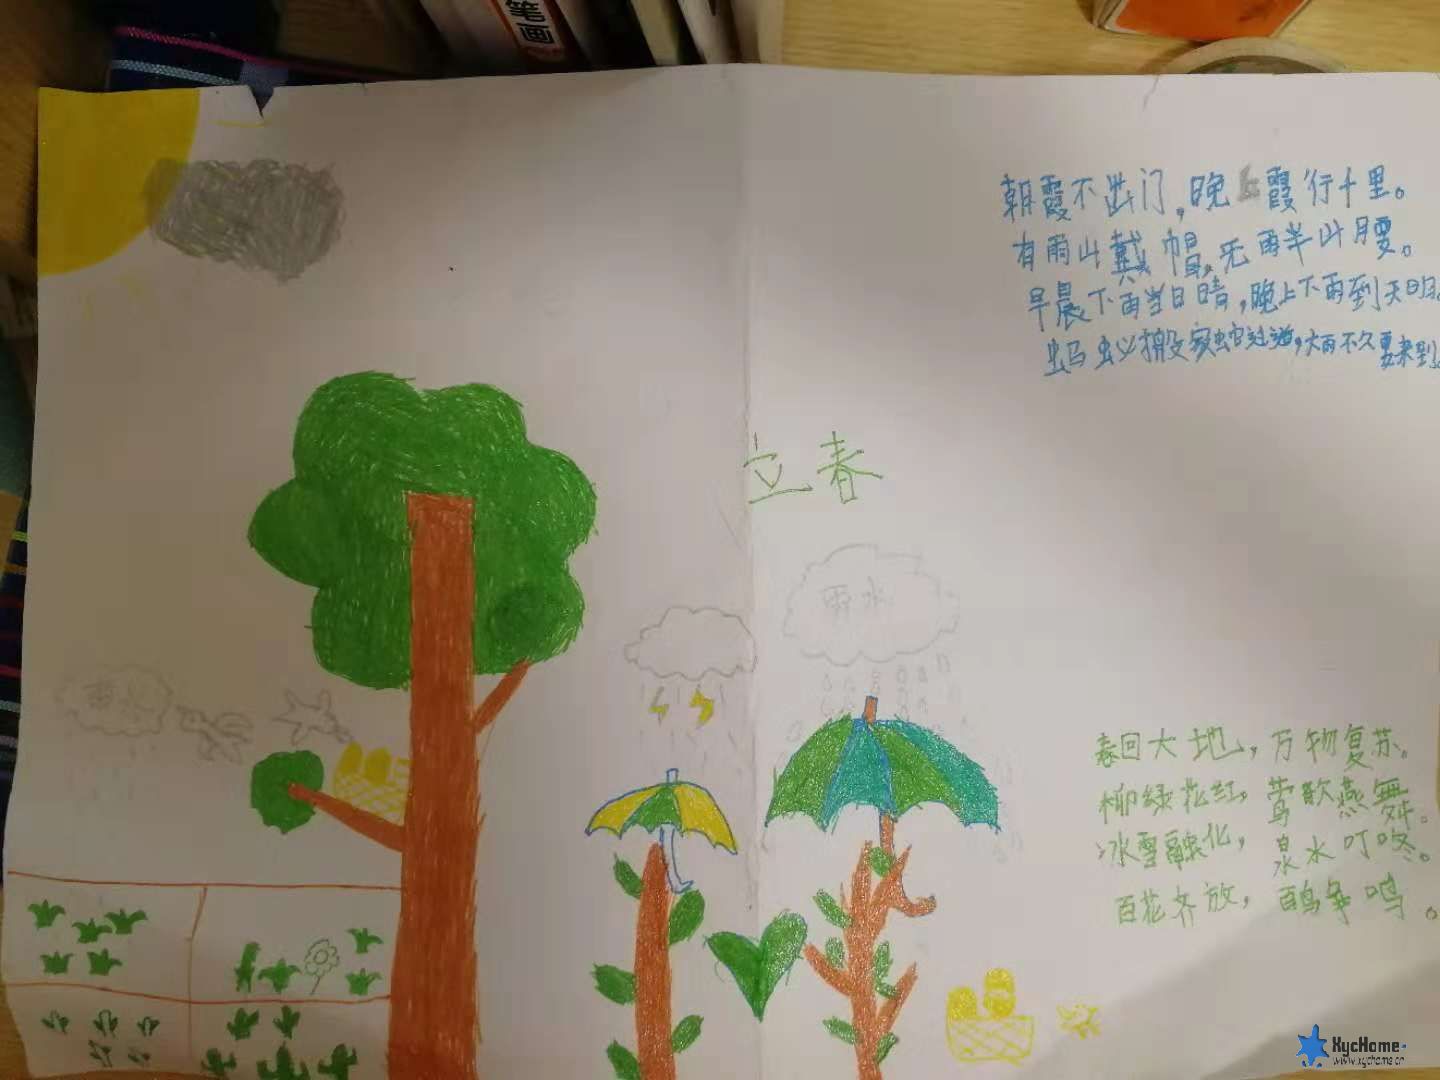 笔画
朝霞不出门,晚霞行千里。
有雨山戴帽,无雨半山腰。
早晨下雨当日晴,晚上下雨到天明。
蚂蚁搬家蛇过道,大雨不久要来到。
立春
雨水
春回大地,万物复苏。
柳绿花红,莺歌燕舞。
冰雪融化,泉水叮咚。
百花齐放,百鸟争鸣。
XycHome
www.xychome.cn